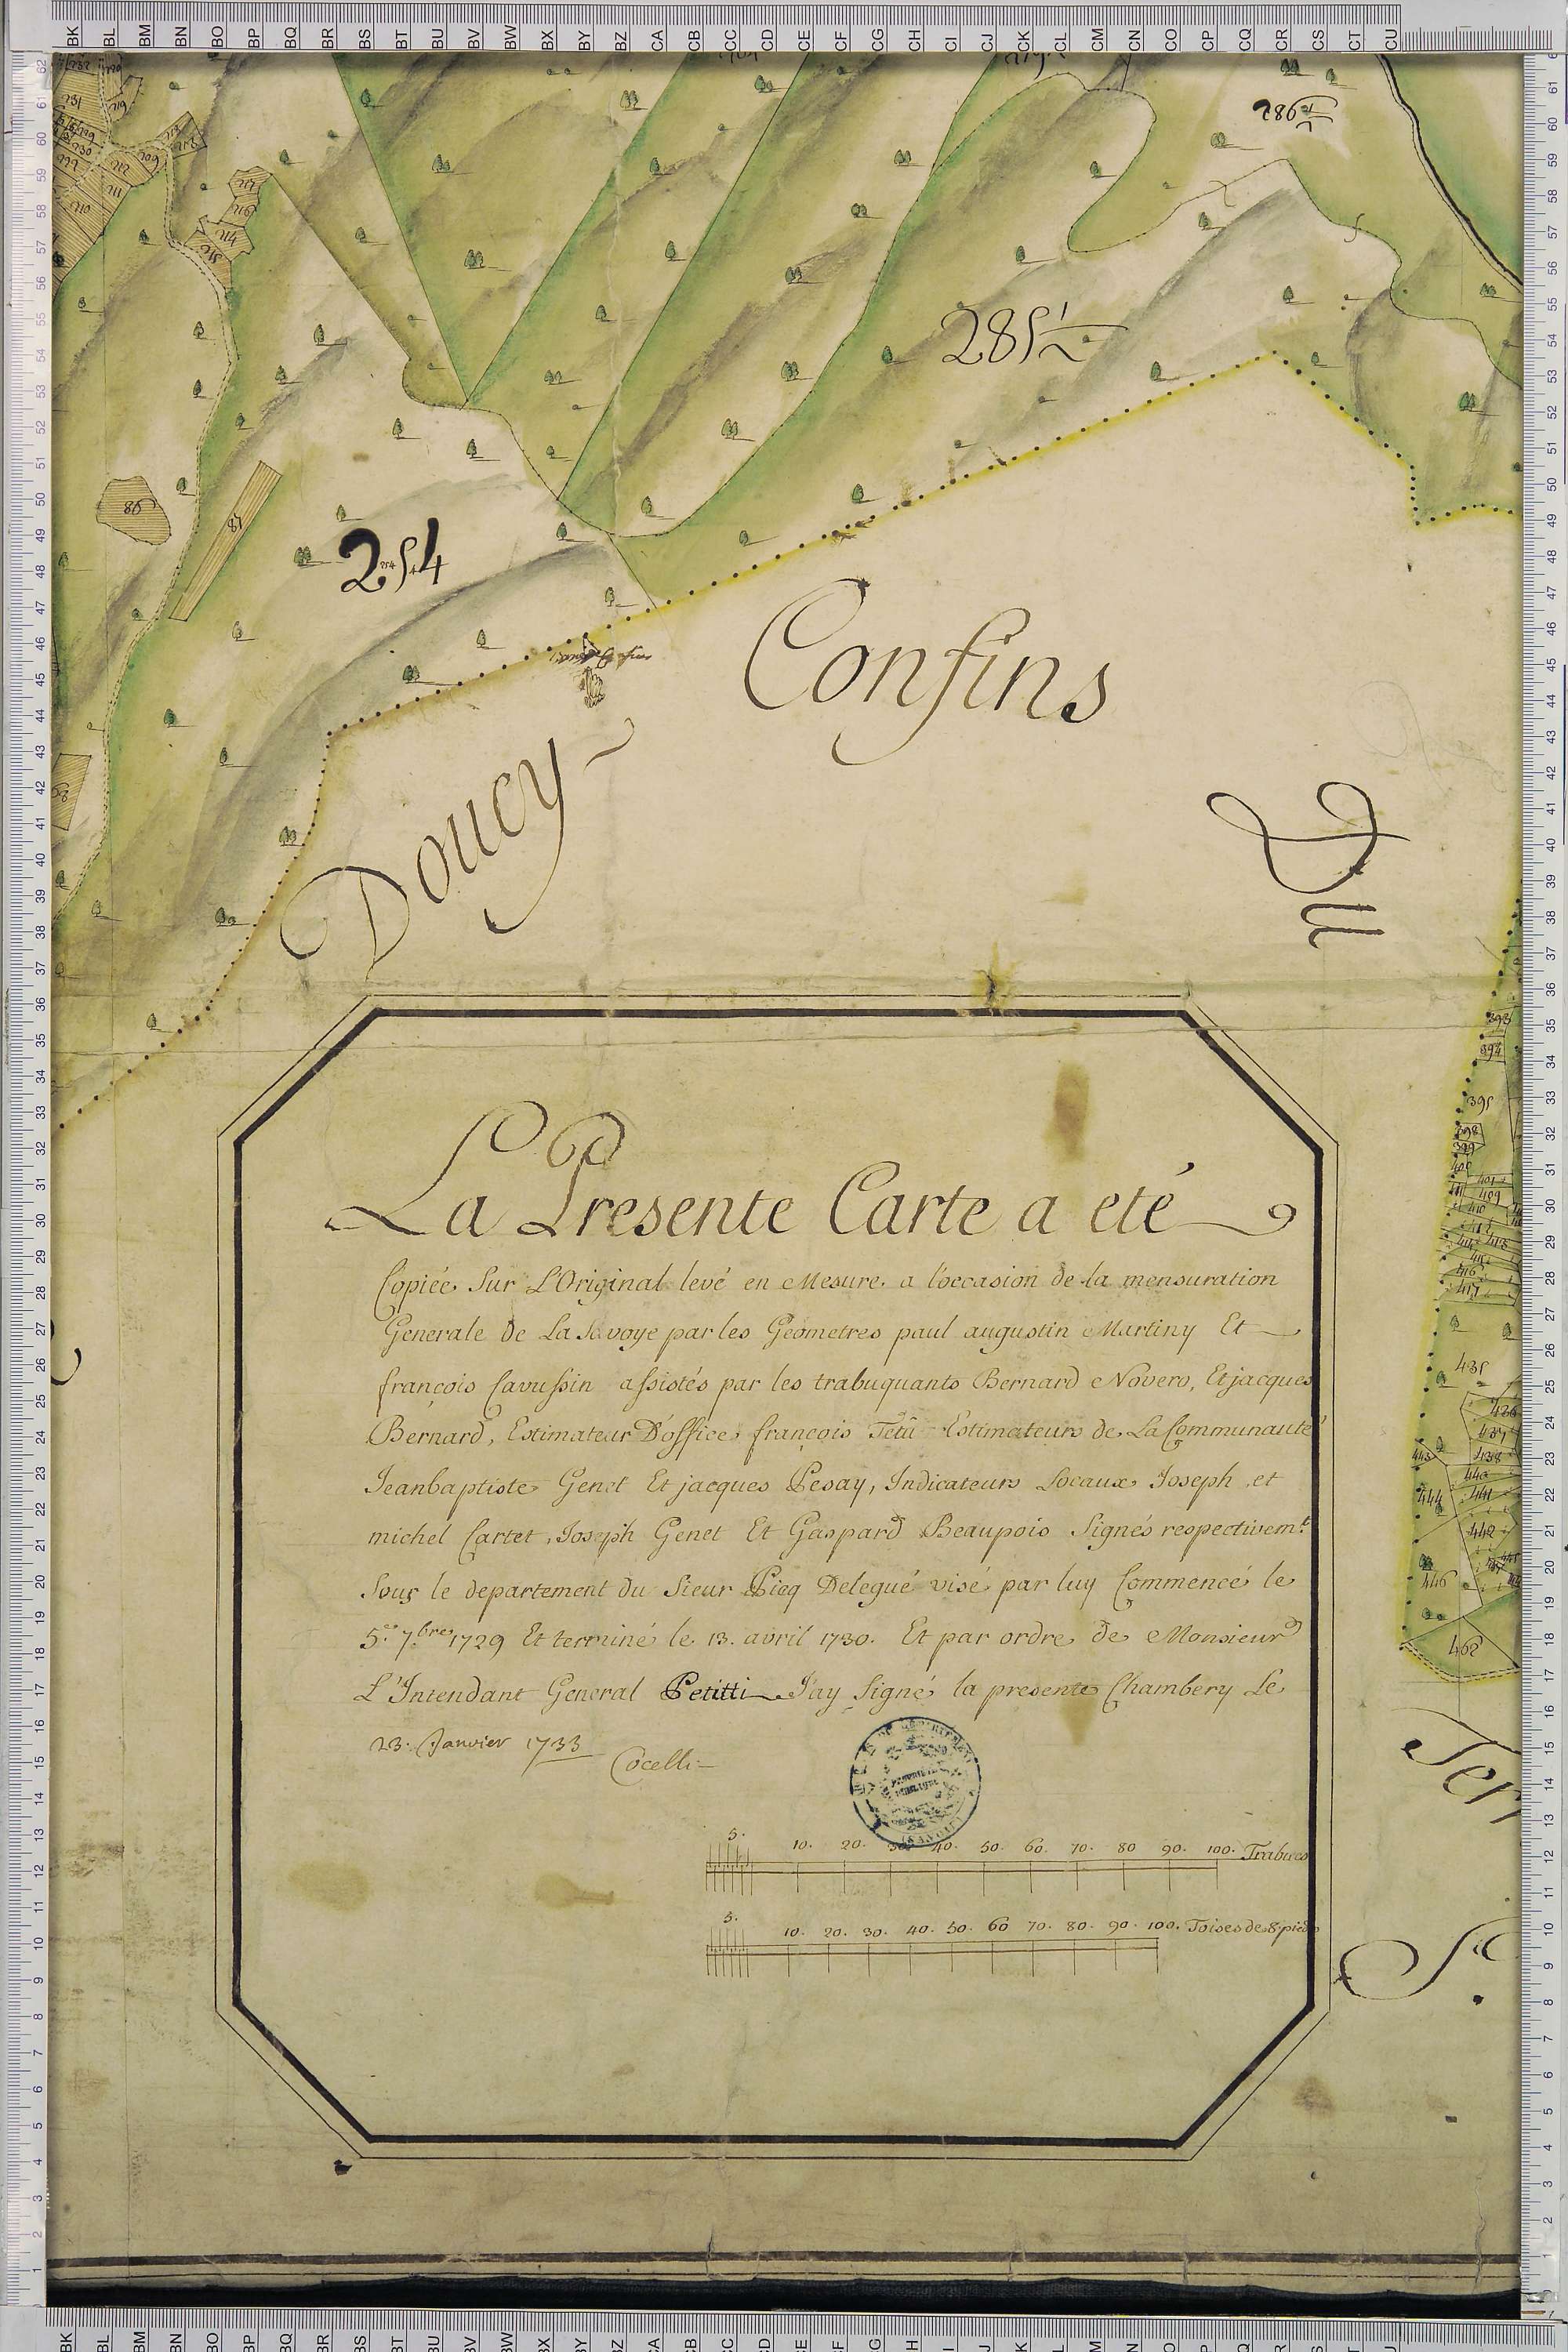 286½
285½
254
86
87
217
216
214
215
212
211
210
209
231
Confins
Doucy
Du
La Presente Carte a eté
Copiée Sur L'Original levé en Mesure a l'occasion de la mensuration
Generale de La Savoye par les Geometres paul augustin Martiny Et
françois Cavussin assistés par les trabuquants Bernard Novero, Et jacques
Bernard, Estimateur D'office françois Tetû Estimateurs de La Communauté
Jeanbaptiste Genet Et jacques Pesay, Indicateurs Locaux Joseph et
michel Cartet, Joseph Genet Et Gaspard Beaupois Signés respectivem.t
Sous le departement du Sieur Picq Delegué visé par luy Commencé le
5.e 7.bre 1729 Et terminé le 13. avril 1730. Et par ordre de Monsieur
L'Intendant General Petitti J'ay Signé la presente Chambery Le
23. Janvier 1733 Cocelli
5. 10. 20. 30. 40. 50. 60. 70. 80 90. 100. Trabucs
5. 10. 20. 30. 40. 50. 60 70. 80. 90. 100. Toises de 8 pieds
393
394
395
398
399
401
409
410
416
417
435
436
437
438
443
440
444
441
442
446
462
Terr
S.t